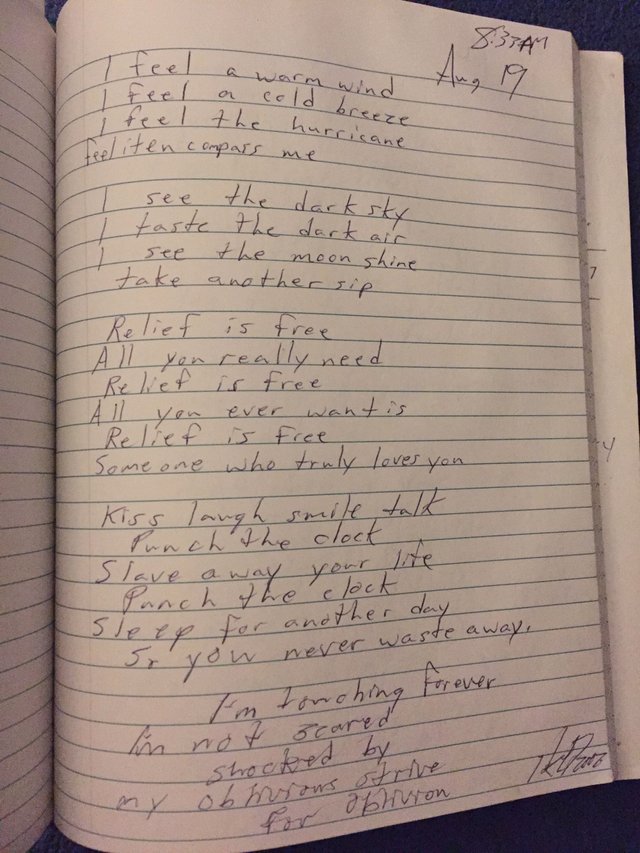 8:33AM
Aug 19
I feel a warm wind
I feel a cold breeze
I feel the hurricane
feel it encompass me
I see the dark sky
I taste the dark air
I see the moon shine
take another sip
Relief is free
All you really need
Relief is free
All you ever want is
Relief is free
Someone who truly loves you
Kiss laugh smile talk
Punch the clock
Slave away your life
Punch the clock
Sleep for another day
So you never waste away.
I'm touching forever
I'm not scared
shocked by
my oblivious strive
for oblivion